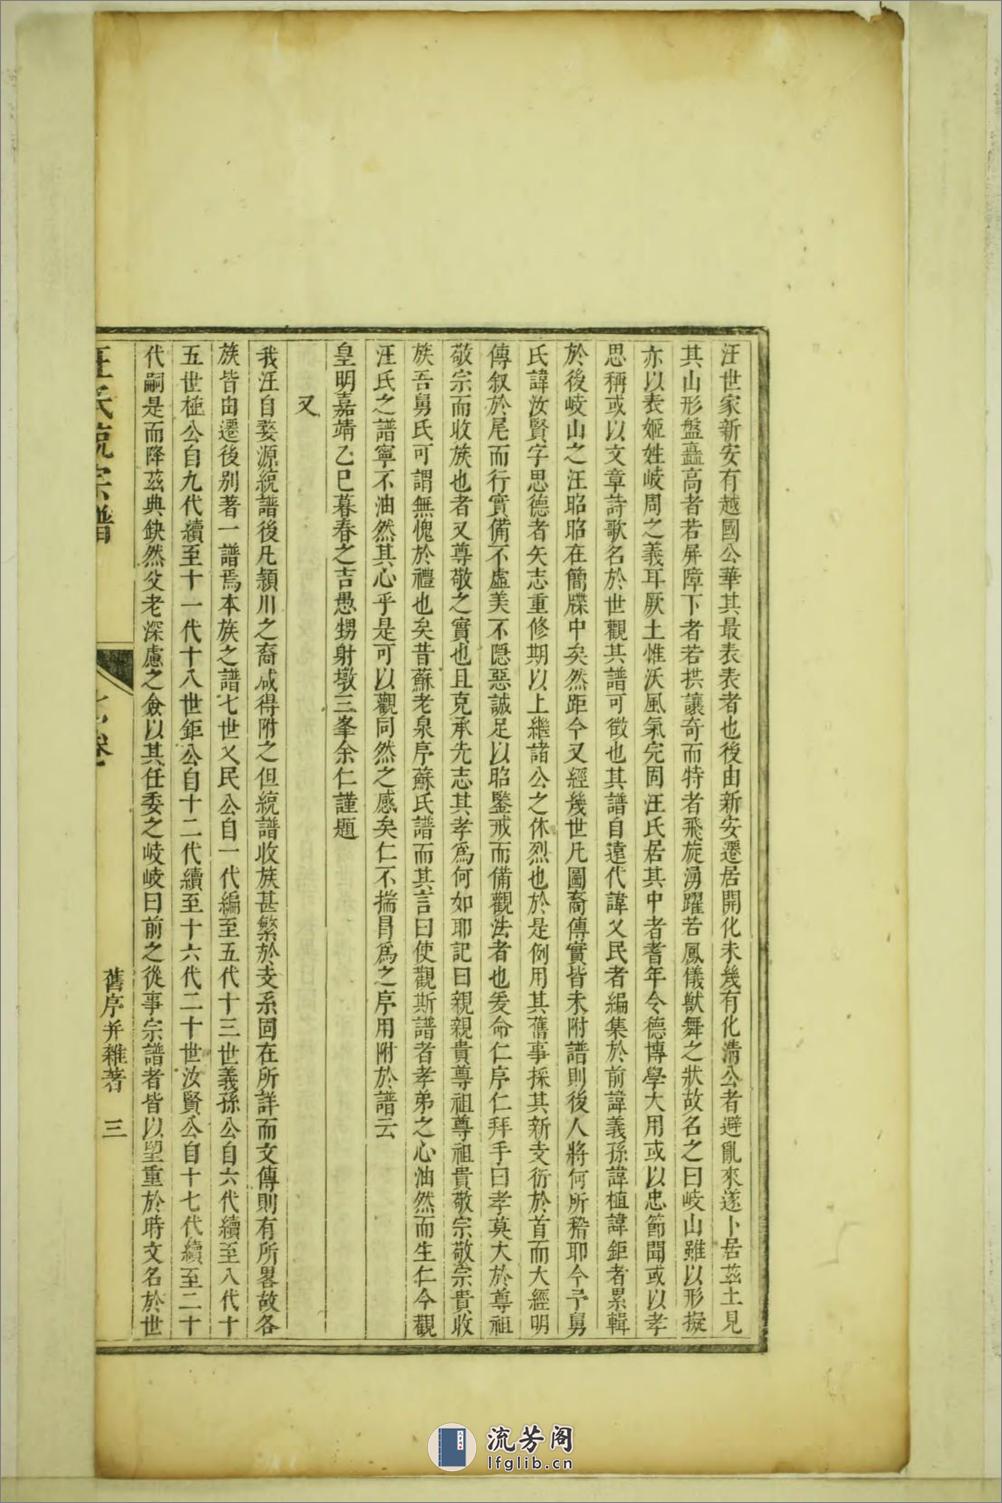 汪世家新安有越國公華其最表表者也後由新安遷居開化未幾有化清公者避亂來遂卜居茲土見
其山形盤矗高者若屏障下者若拱讓奇而特者飛旋湧躍若鳳儀獸舞之狀故名之曰岐山雖以形擬
亦以表姬姓岐周之義耳厥土惟沃風氣完固汪氏居其中者耆年令德博學大用或以忠節聞或以孝
思稱或以文章詩歌名於世觀其譜可徵也其譜自遠代諱乂民者編集於前諱義孫諱植諱鉅者累輯
於後岐山之汪昭昭在簡牒中矣然距今又經幾世凡圖裔傳實皆未附譜則後人將何所稽耶今予舅
氏諱汝賢字思德者矢志重修期以上繼諸公之休烈也於是例用其舊事採其新支衍於首而大經明
傳叙於尾而行實備不虛美不隱惡誠足以昭鑒戒而備觀法者也爰命仁序仁拜手曰孝莫大於尊祖
敬宗而收族也者又尊敬之實也且克承先志其孝爲何如耶記曰親親貴尊祖尊祖貴敬宗敬宗貴收
族吾舅氏可謂無愧於禮也矣昔蘇老泉序蘇氏譜而其言曰使觀斯譜者孝弟之心油然而生仁今觀
汪氏之譜寧不油然其心乎是可以觀同然之感矣仁不揣冒爲之序用附於譜云
皇明嘉靖乙巳暮春之吉愚甥射墩三峯余仁謹題
又
我汪自婺源統譜後凡潁川之裔咸得附之但統譜收族甚繁於支系固在所詳而文傳則有所畧故各
族皆由遷後别著一譜焉本族之譜七世乂民公自一代編至五代十三世義孫公自六代續至八代十
五世極公自九代續至十一代十八世鉅公自十二代續至十六代二十世汝賢公自十七代續至二十
代嗣是而降茲典缺然父老深慮之僉以其任委之岐岐曰前之從事宗譜者皆以望重於時文名於世
汪氏統宗譜
七卷
舊序并雜著 三
流芳阁
lfglib.cn